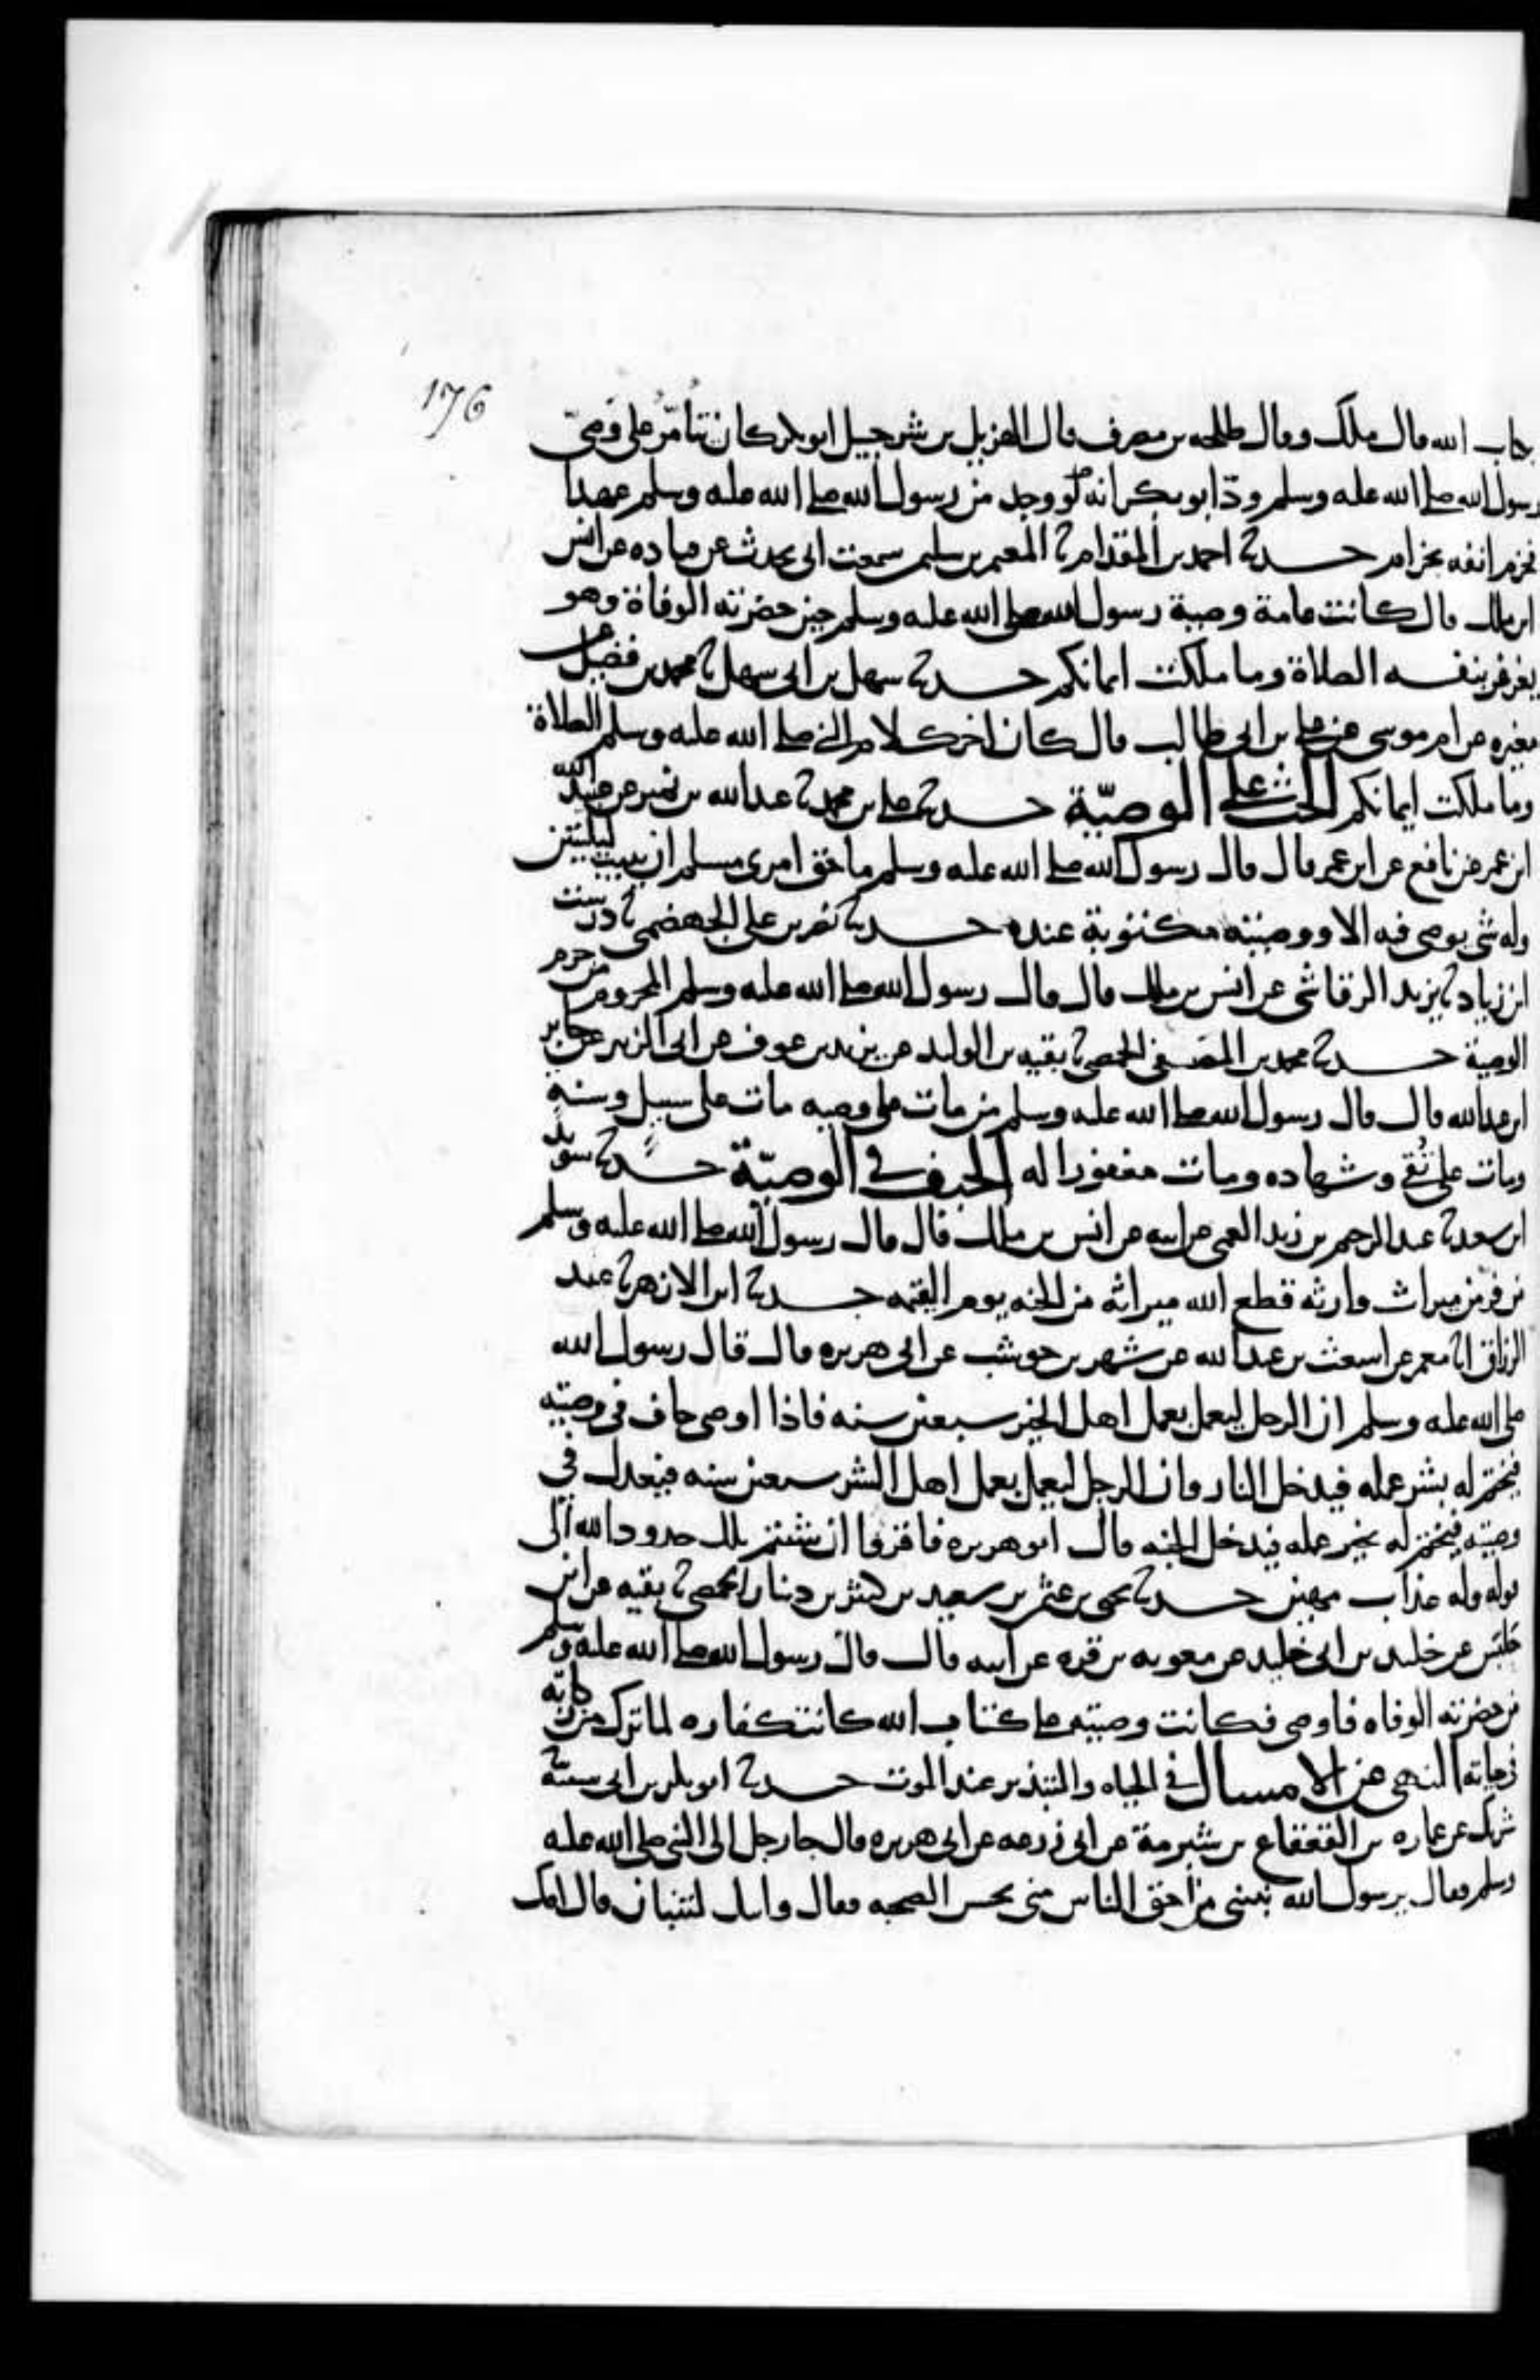 176
بكتاب الله قال ملك وقال طلحه بن مصرف قال الهزيل بن شرحبيل ابو بكر كان يتأمّر على وصيّ
رسول الله صلى الله عليه وسلم ودّ ابو بكر انه لو وجد من رسول الله صلى الله عليه وسلم عهدا
فخزم انفه بخزام حدثنا احمد بن المقدام ثنا المعتمر بن سليمن سمعت ابى يحدث عن قتاده عن انس
ابن ملك قال كانت عامة وصية رسول الله صلى الله عليه وسلم حين حضرته الوفاة وهو
يغرغر بنفسه الصلاة وما ملكت ايمانكم حدثنا سهل بن ابى سهل ثنا محمد بن فضيل عن
مغيره عن ام موسى عن على بن ابى طالب قال كان اخر كلام النبى صلى الله عليه وسلم الصلاة
وما ملكت ايمانكم الحث على الوصيّة حدثنا على بن محمد ثنا عبدالله بن نمير عن عبيد الله
ابن عمر عن نافع عن ابن عمر قال قال رسول الله صلى الله عليه وسلم ما حق امرى مسلم ان يبيت ليلتين
وله شى يوصى فيه الا ووصيته مكتوبة عنده حدثنا نصر بن على الجهضمى ثنا درست
ابن زياد ثنا يزيد الرقاشى عن انس بن ملك قال قال رسول الله صلى الله عليه وسلم المحروم من حرم
الوصية حدثنا محمد بن المصفى الحمصى ثنا بقيه بن الوليد عن يزيد بن عوف عن ابى الزبير عن جابر
ابن عبدالله قال قال رسول الله صلى الله عليه وسلم من مات على وصيه مات على سبيل وسنةٍ
ومات على تُقى وشهاده ومات مغفورا له الحيف فى الوصيّة حدثنا سويد
ابن سعيد ثنا عبد الرحيم بن زيد العمى عن ابيه عن انس بن ملك قال قال رسول الله صلى الله عليه وسلم
من فر من ميراث وارثه قطع الله ميراثه من الجنه يوم القيمه حدثنا ابن الازهر ثنا عبد
الرزاق انا معمر عن اشعث بن عبدالله عن شهر بن حوشب عن ابى هريره قال قال رسول الله
صلى الله عليه وسلم ان الرجل ليعمل بعمل اهل الخير سبعين سنه فاذا اوصى حاف فى وصيته
فيختم له بشر عمله فيدخل النار وان الرجل ليعمل بعمل اهل الشر سبعين سنه فيعدل فى
وصيته فيختم له بخير عمله فيدخل الجنه قال ابو هريره فاقروا ان شئتم تلك حدود الله الى
قوله وله عذاب مهين حدثنا يحيى بن عثمن بن سعيد بن كثير بن دينار الحمصى ثنا بقيه عن ابى
حلبس عن خليد بن ابى خليد عن معويه بن قره عن ابيه قال قال رسول الله صلى الله عليه وسلم
من حضرته الوفاه فاوصى فكانت وصيته على كتاب الله كانت كفاره لما ترك من زكاته
فى حياته النهى عن الامساك فى الحياه والتبذير عند الموت حدثنا ابو بكر بن ابى شيبة ثنا
شريك عن عماره بن القعقاع بن شبرمة عن ابى زرعه عن ابى هريره قال جا رجل الى النبى صلى الله عليه
وسلم فقال يرسول الله نبئنى من احق الناس منى بحسن الصحبه فقال وابيك لتنبان قال امك